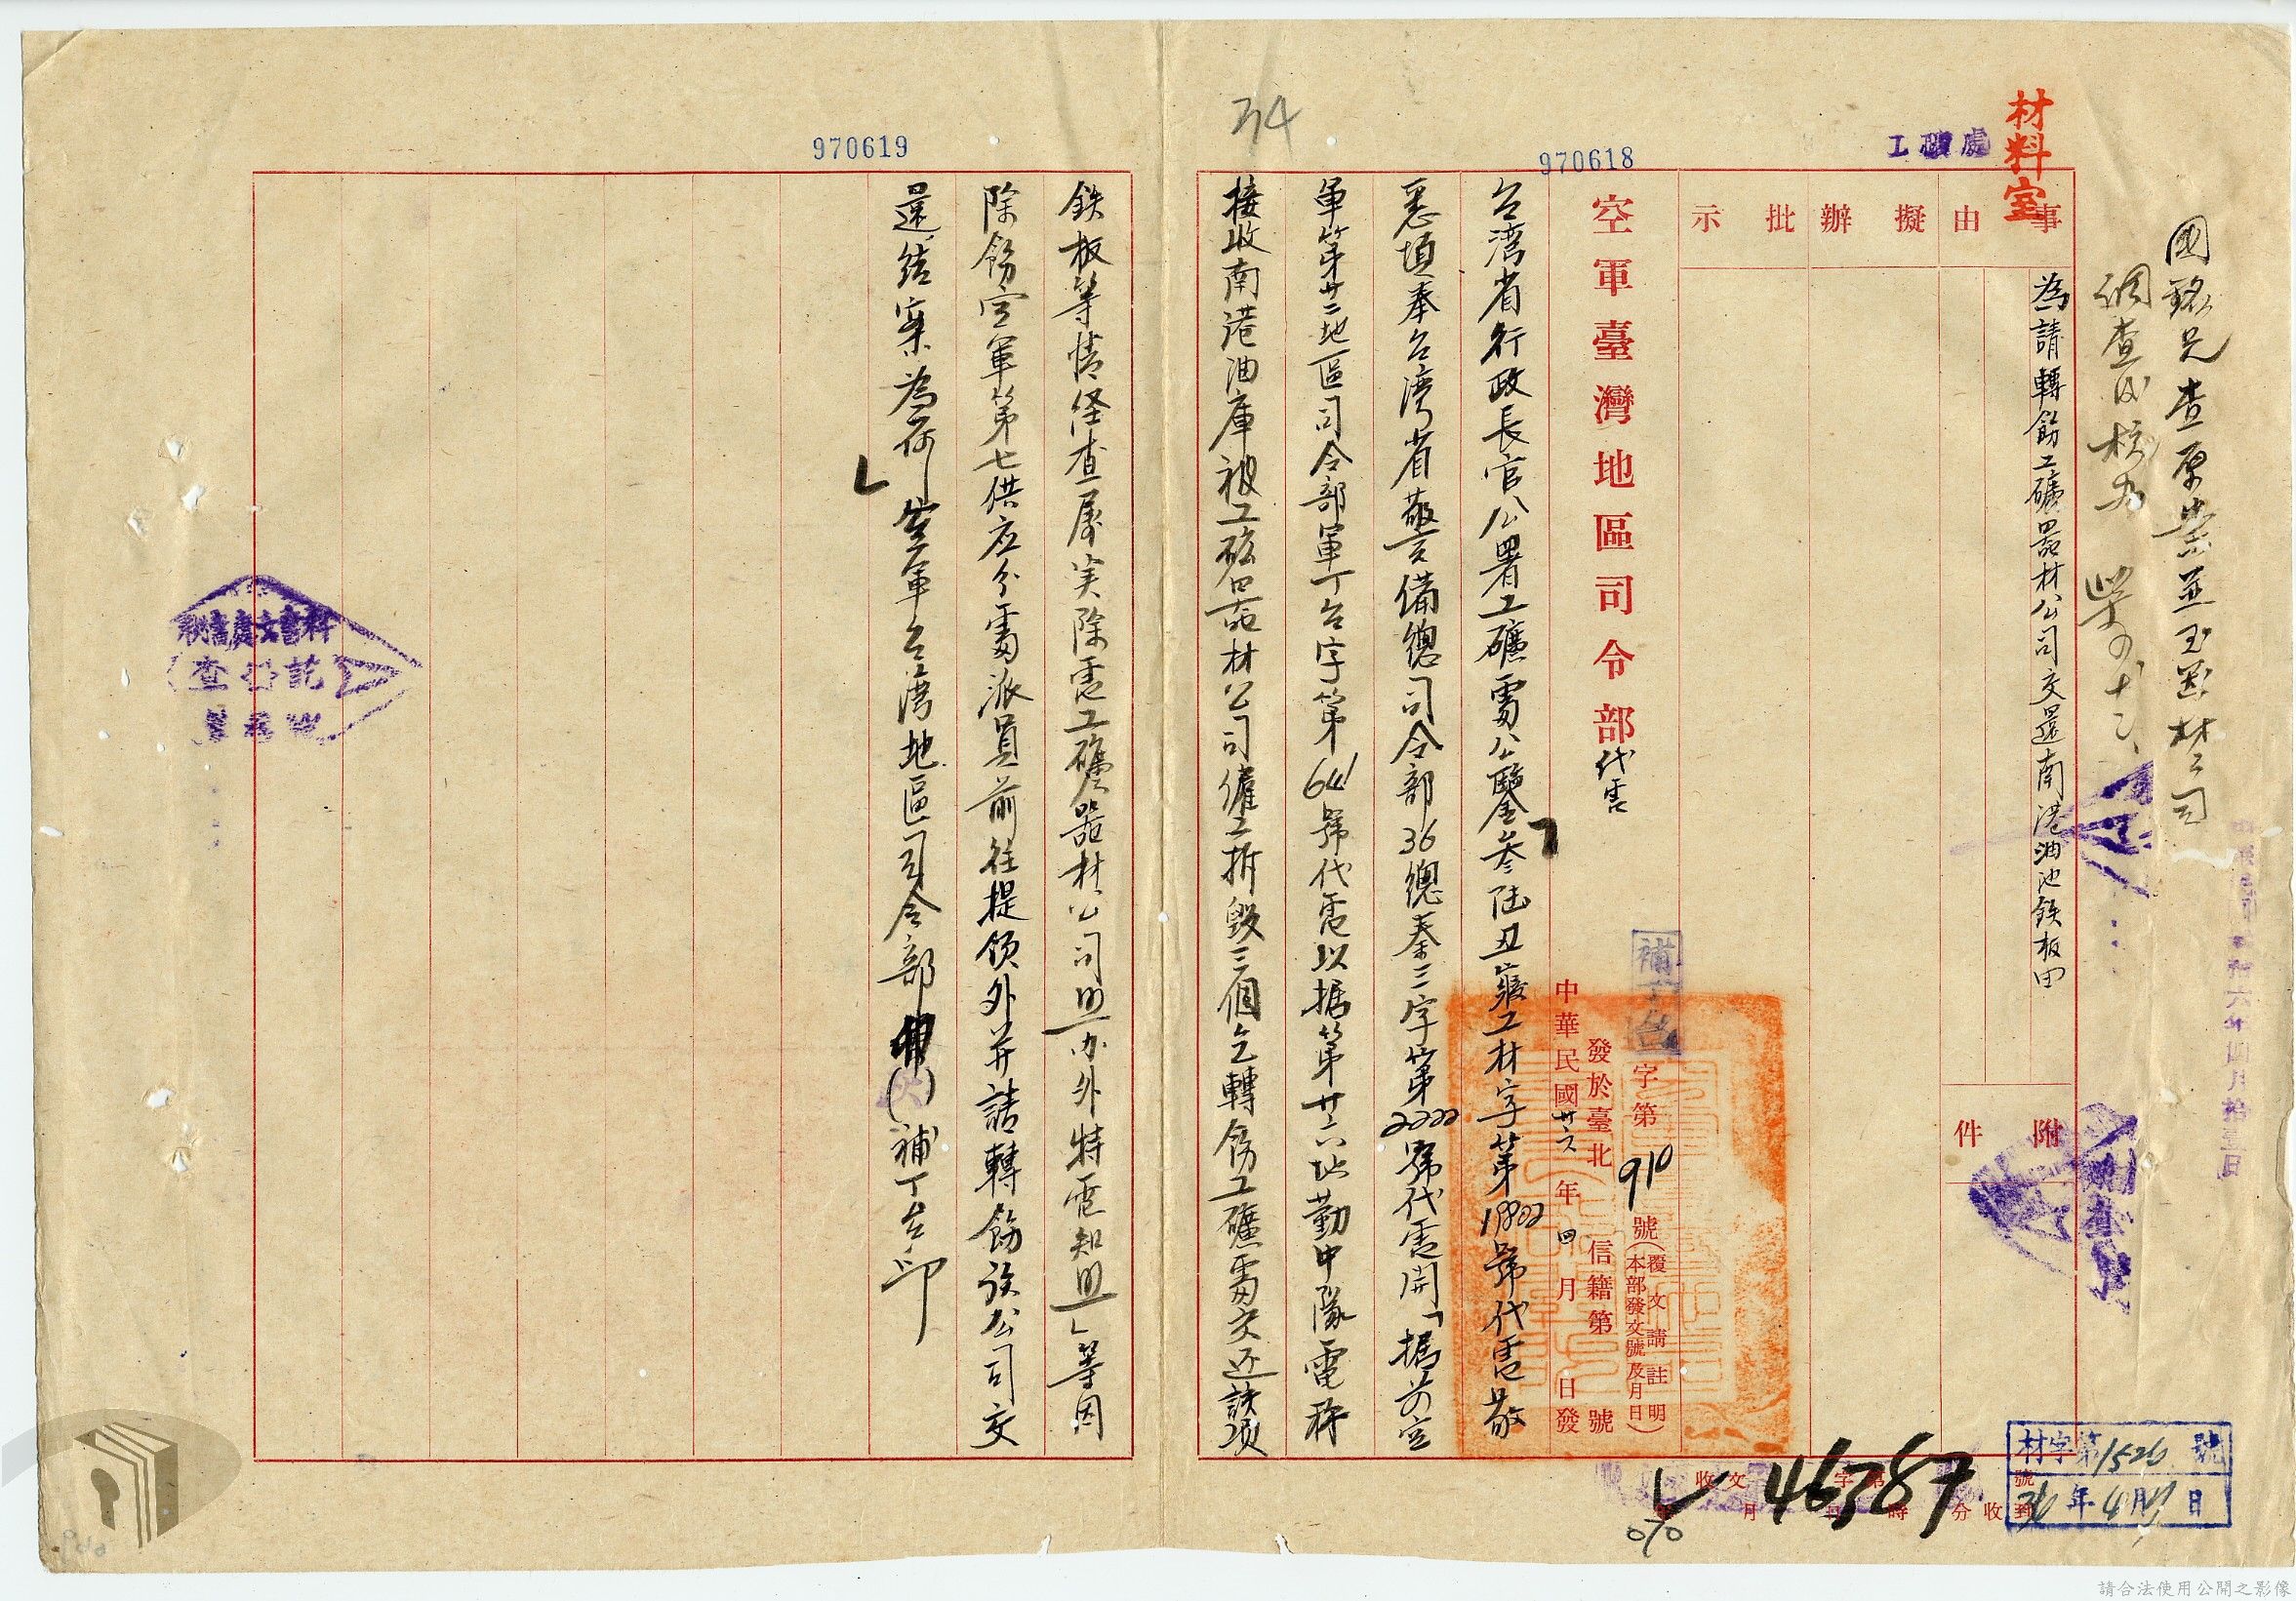 材料室
工礦處
國銘兄查原案並
調查後核办
事由
擬辦
批示
為請轉飭工礦器材公司交還南港油池鉄板由
附件
空軍臺灣地區司令部代電
補丁台字第910號(覆文請註明本部發文號及月日)
發於臺北
信籍第 號
中華民國卅六年四月 日發
台湾省行政長官公署工礦處公鑒叁陸丑 工材字第1802號代電敬
悉頃奉台湾省警備總司令部36總秦三字第2222號代電開「据前空
軍第廿二地區司令部軍丁台字第641號代電以据第廿六站勤中隊電称
接收南港油庫被工砿器材公司僱工拆毀三個乞轉飭工礦處交还該項
鉄板等情经查屬实除電工礦器材公司照办外特電知照」等因
除飭空軍第七供应分處派員前往提领外并請轉飭该公司交
還結案為荷
空軍台湾地區司令部 ( )補丁台印
970618
970619
34
秘書處文書科
登記
查
收文 字第46387號
月 日 時 分收到
材字第1526號
36年4月 日
070
請合法使用公開之影像